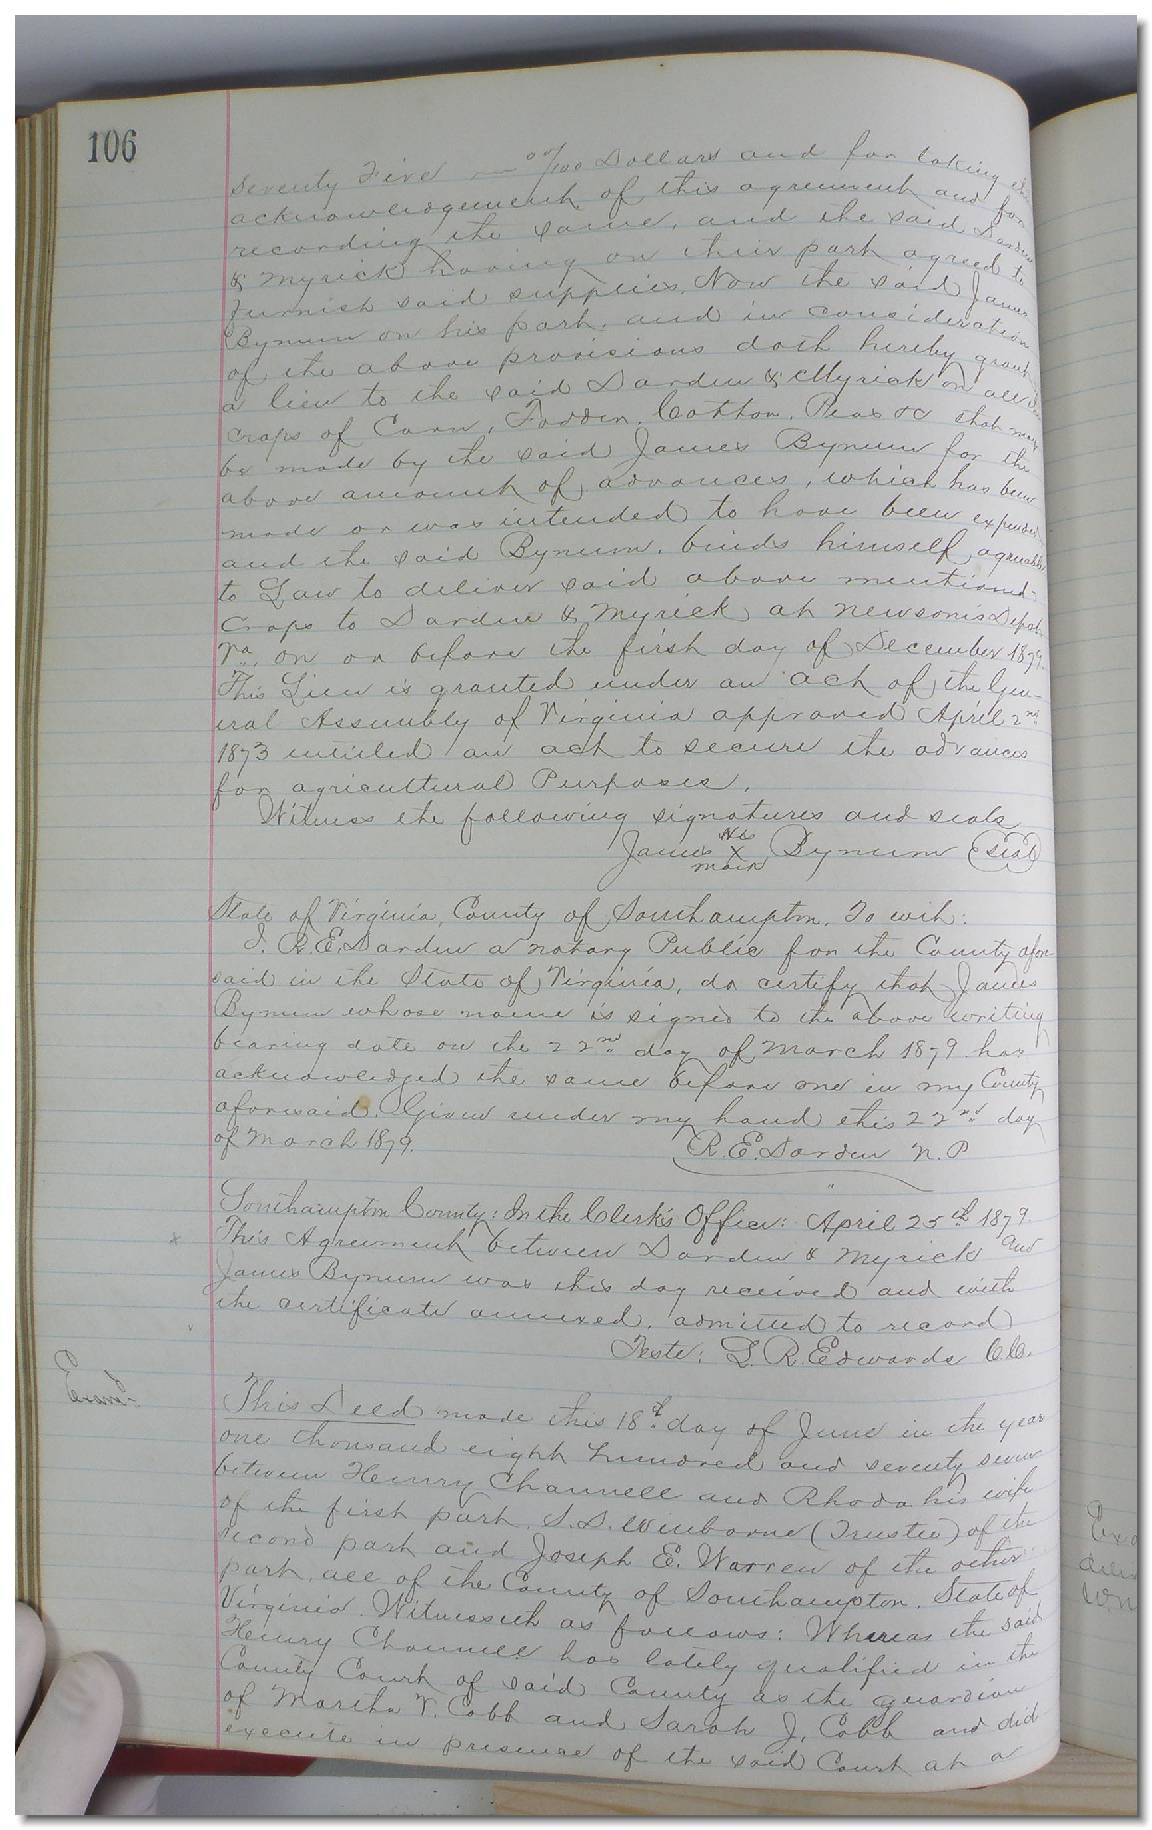 106
Seventy Five — 00/100 Dollars and for taking the
acknowledgement of this agreement and for
recording the same, and the said Darden
& Myrick having on their part agreed to
furnish said supplies. Now the said James
Bynum on his part, and in consideration
of the above provisions doth hereby grant
a lien to the said Darden & Myrick on all
crops of Corn, Fodder, Cotton, Peas &c that may
be made by the said James Bynum for the
above amount of advances, which has been
made or was intended to have been expended
and the said Bynum, binds himself agreeable
to Law to deliver said above mentioned
Crops to Darden & Myrick at Newsom's Depot
Va. on or before the first day of December 1879.
This Lien is granted under an act of the Gen-
eral Assembly of Virginia approved April 2nd
1873 intitled an act to secure the advances
for agricultural Purposes.
Witness the following signatures and seals
James his X mark Bynum (seal)
State of Virginia, County of Southampton, To wit:
I, R.E. Darden a notary Public for the County afore
said in the State of Virginia, do certify that James
Bynum whose name is signed to the above writing
bearing date on the 22nd day of March 1879 has
acknowledged the same before me in my County
aforesaid. Given under my hand this 22nd day
of March 1879.
R.E. Darden N.P
Southampton County: In the Clerk's Office: April 25th 1879.
This Agreement between Darden & Myrick and
James Bynum was this day received and with
the certificate annexed, admitted to record
Teste: L. R. Edwards C.C.
Exam.d
This Deed made this 18th day of June in the year
one thousand eight hundred and seventy seven
between Henry Channell and Rhoda his wife
of the first part, S.S. Winborne (Trustee) of the
second part and Joseph E. Warren of the other
part, all of the County of Southampton, State of
Virginia. Witnesseth as follows: Whereas the said
Henry Channell has lately qualified in the
County Court of said County as the guardian
of Martha V. Cobb and Sarah J. Cobb and did
execute in presence of the said Court at a